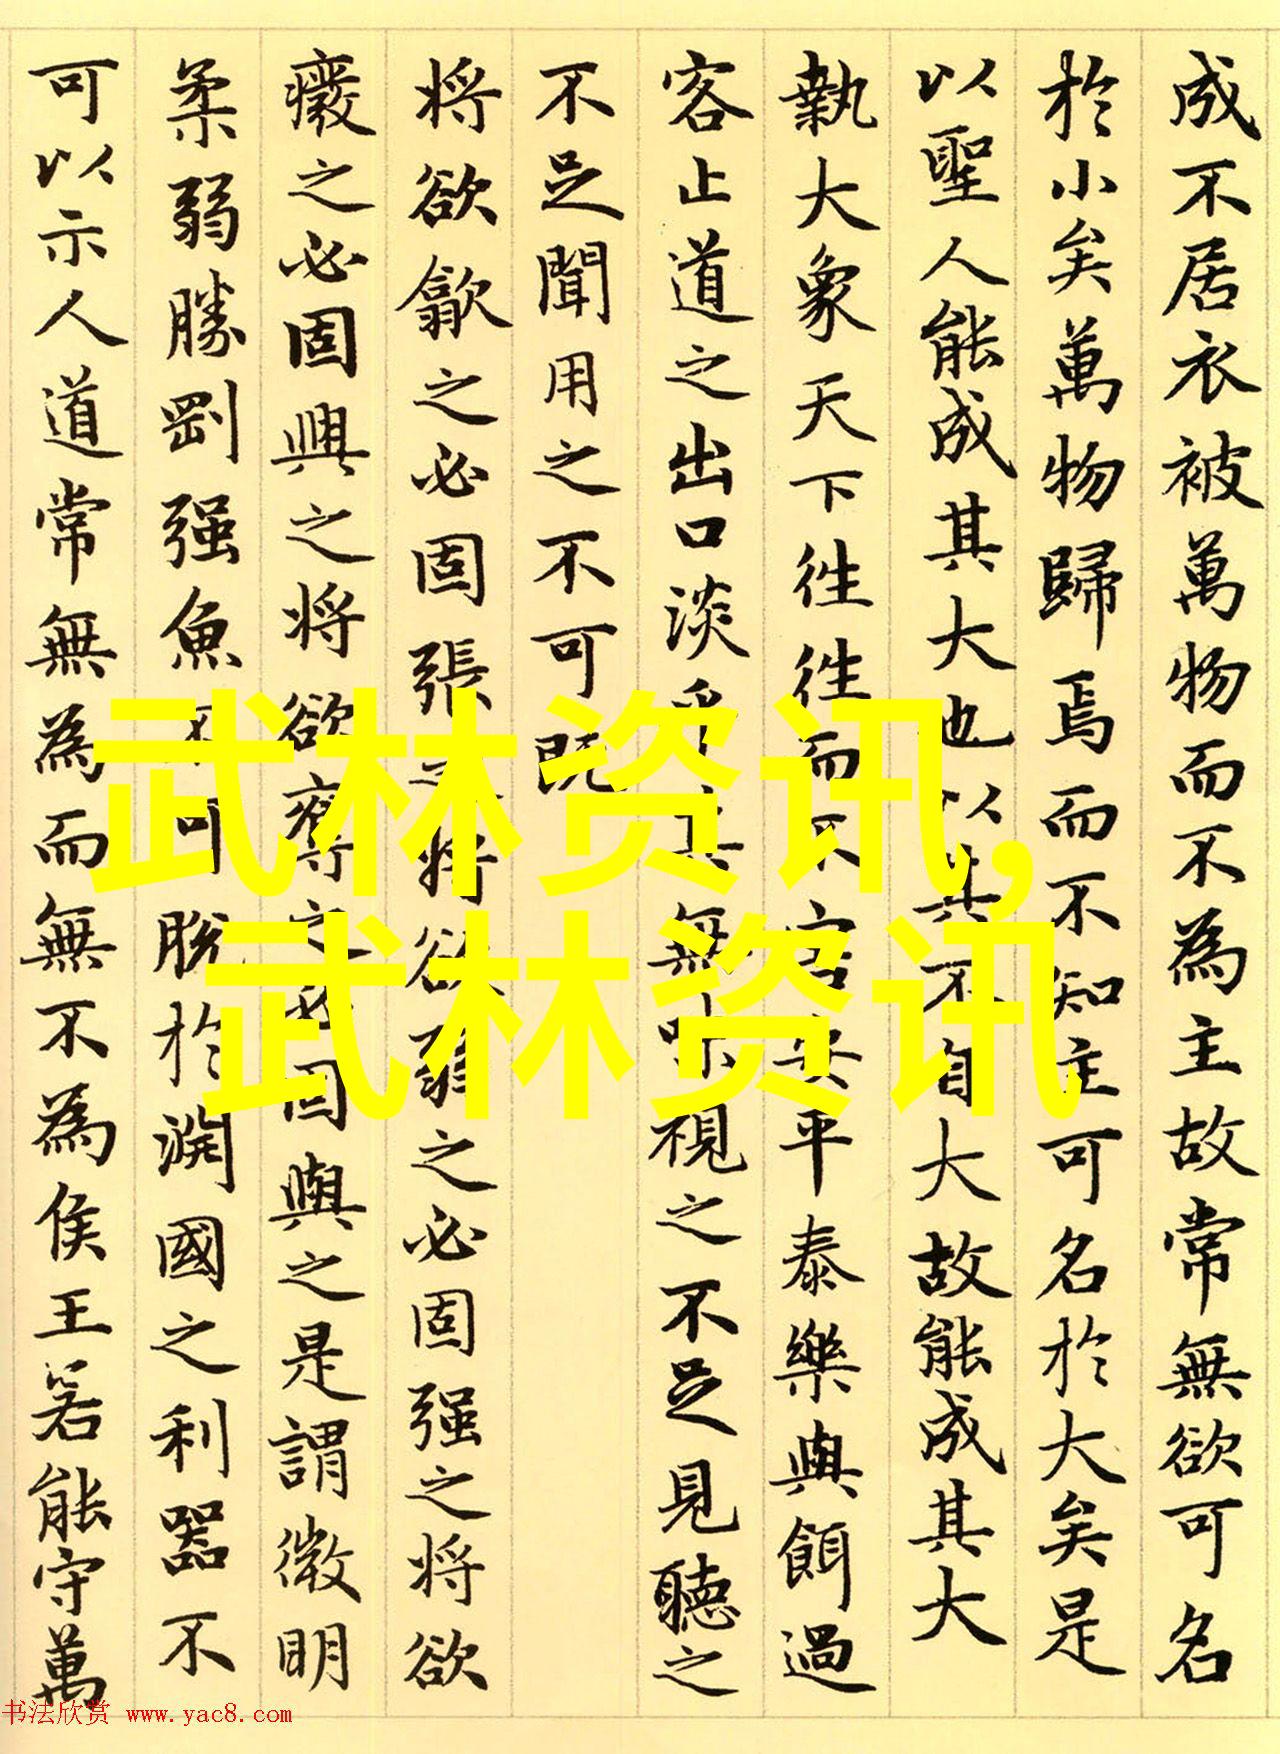 成不居衣被萬物而不為主故常無欲可名
於小矣萬物歸焉而不知主可名於大矣是
以聖人能成其大也以其不自大故能成其大
執大象天下徃徃而不害安平泰樂與餌過
客止道之出口淡乎其無味視之不足見聽之
不足聞用之不可既
將欲歙之必固張之將欲弱之必固强之將欲
癈之必固興之將欲奪之必固與之是謂微明
柔弱勝剛强魚不可脱於淵國之利器不
可以示人道常無為而無不為侯王若能守萬
武林资讯,
武林资讯
书法欣赏 www.yac8.com